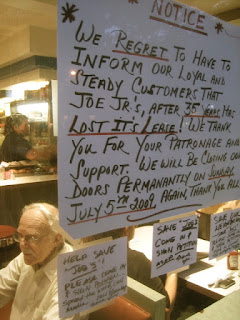 NOTICE
WE REGRET TO HAVE TO
INFORM OUR LOYAL AND
STEADY CUSTOMERS THAT
JOE JR'S, AFTER 35 YEARS, HAS
LOST ITS LEASE! WE THANK
YOU FOR YOUR PATRONAGE AND
SUPPORT. WE WILL BE CLOSING OUR
DOORS PERMANANTLY ON SUNDAY,
JULY 5TH 2009. AGAIN, THANK YOU ALL
HELP SAVE
JOE JR
PLEASE COME IN
& SIGN
SAVE
COME IN &
SIGN PETITION
SAVE